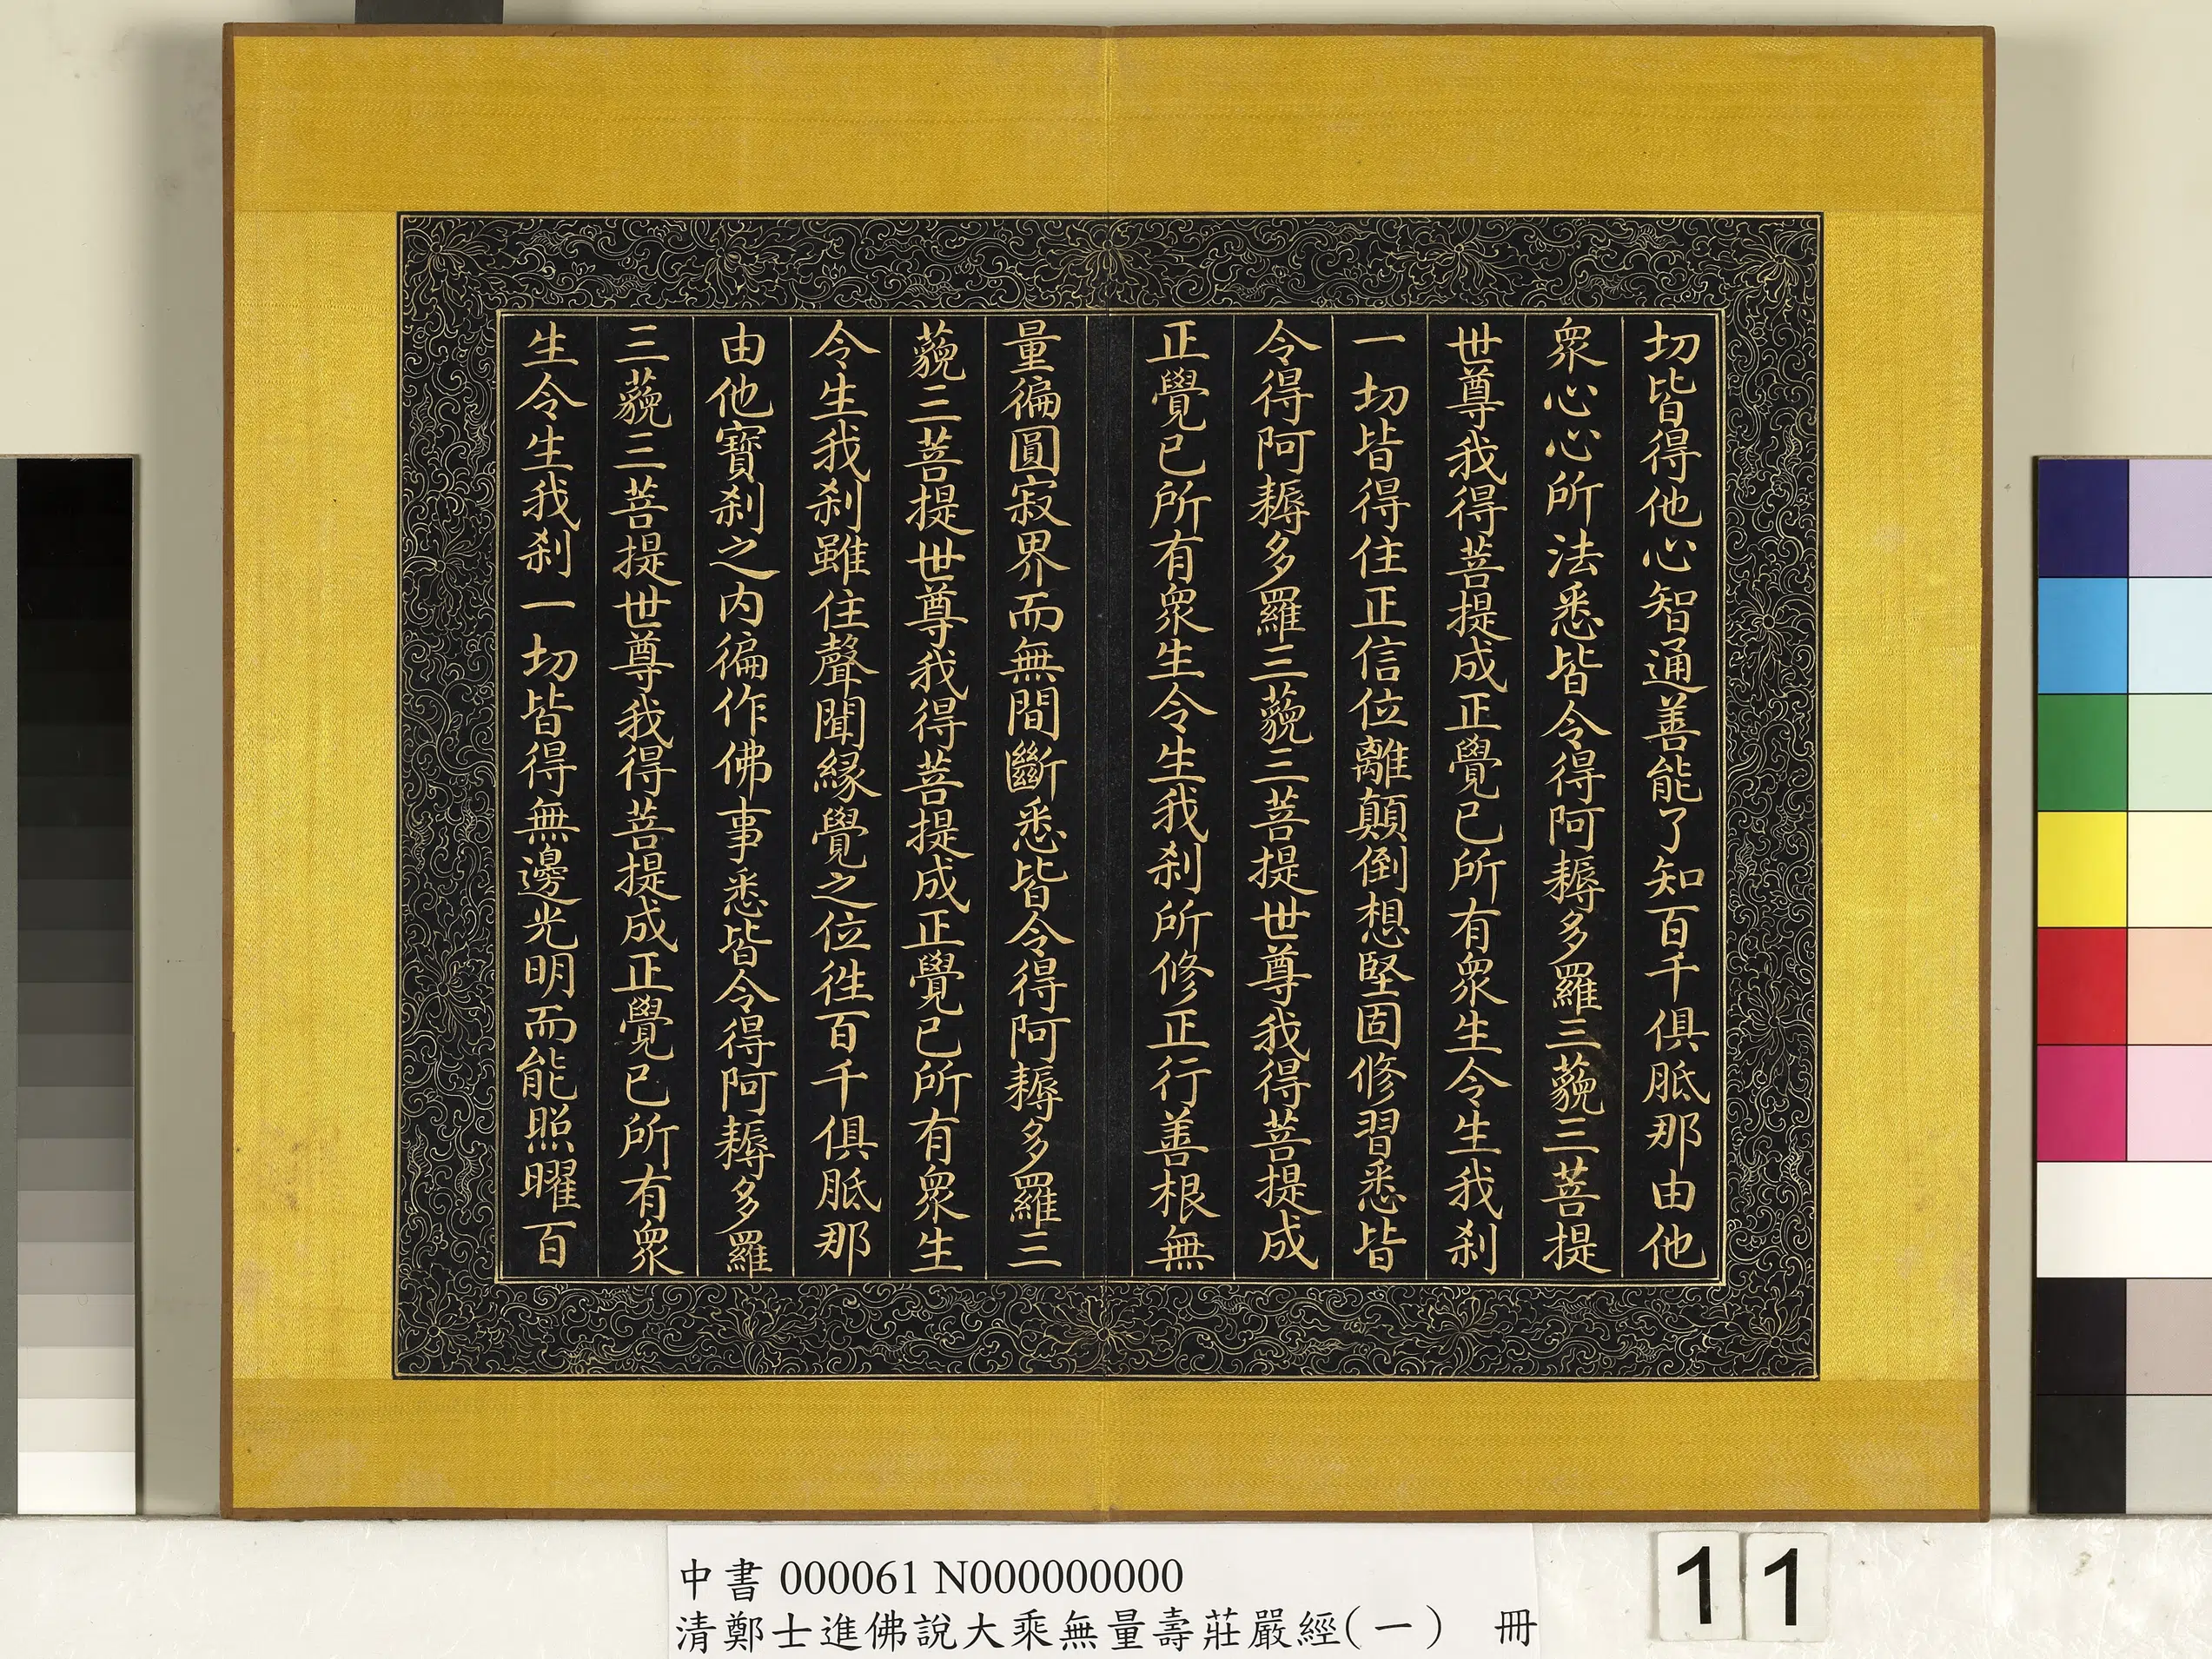 切皆得他心智通善能了知百千俱胝那由他
眾心心所法悉皆令得阿耨多羅三藐三菩提
世尊我得菩提成正覺已所有眾生令生我刹
一切皆得住正信位離顛倒想堅固修習悉皆
令得阿耨多羅三藐三菩提世尊我得菩提成
正覺已所有眾生令生我刹所修正行善根無
量徧圓寂界而無間斷悉皆令得阿耨多羅三
藐三菩提世尊我得菩提成正覺已所有眾生
令生我刹雖住聲聞緣覺之位徃百千俱胝那
由他寶刹之內徧作佛事悉皆令得阿耨多羅
三藐三菩提世尊我得菩提成正覺已所有眾
生令生我刹一切皆得無邊光明而能照曜百
中書 000061 N000000000
清鄭士進佛說大乘無量壽莊嚴經(一) 冊
11